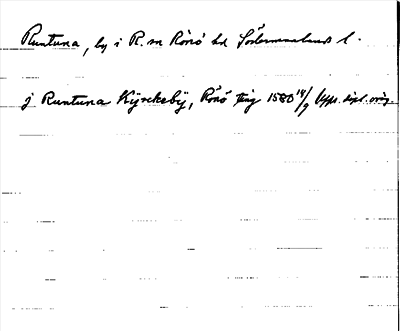 Runtuna, by i R. sn Rönö hd Södermanlands l.
j Runtuna Kÿrckebÿ, Rönö ting 1580 18/9 Upps. dipl. orig.